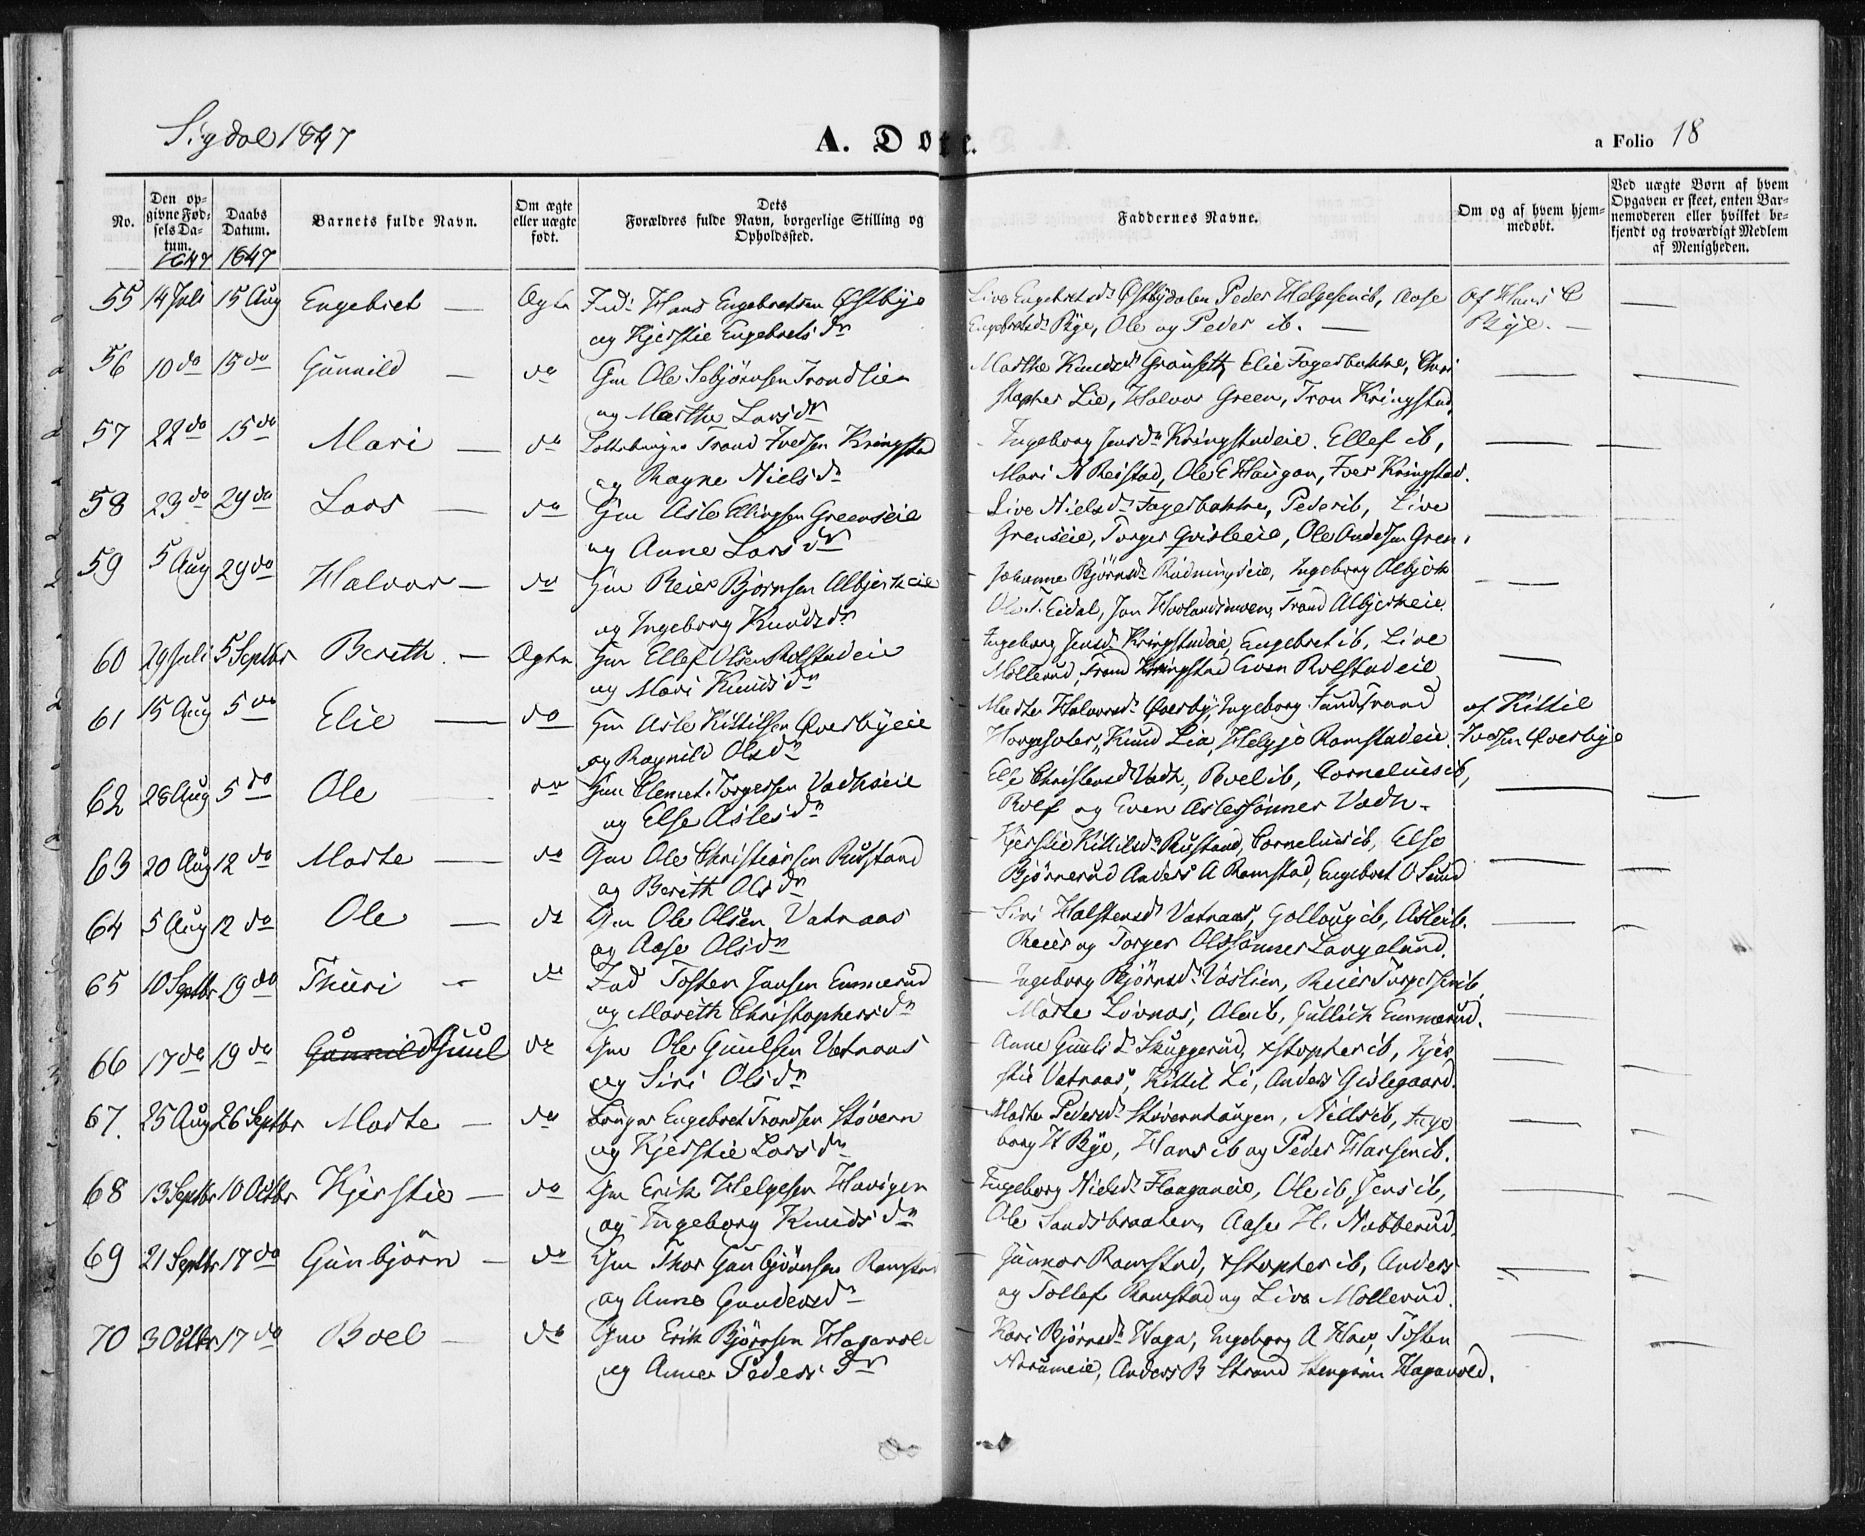 Sigdal 1847
A. Døte.
a Folio 18
No.
Den op-
givne Fød-
sels Da-
tum.
1847
Daabs
Datum.
1847
Barnets fulde Navn.
Om ægte
eller uægte
født.
Dets
Forældres fulde Navn, borgerlige Stilling og
Opholdssted.
Faddernes Navne.
Om og af hvem hjem-
medøbt.
Ved uægte Børn af hvem
Opgaven er skeet, enten Bar-
nemoderen eller hvilket be-
kjendt og troværdigt Medlem
af Menigheden.
55 14 Juli 15 Aug Engebret — Hans Engebretsen Østbye
og Kjerstie Engebretsdr
Live Engebretsdr Østbydalen Peder Helgesen ib, Aase
Engebretsdr Bye, Ole og Peder ib. —
Af Hans E
Bye. —
56 10 do 15 do Gunnild — do Gm Ole Sebjørnsen Trondlien
og Marthe Larsdr
Marthe Knudsdr Grønseth, Elie Fagerbakke, Chri
stopher Lie, Halvor Green, Tron Kringstad
57 22 do 15 do Mari — do Trond Iversen Kringstad
og Ragne Nielsdr
Ingeborg Jensdr Kringstadeie. Ellef ib,
Mari N Reistad, Ole E Haugan, Iver Kringstad.
58 23 do 29 do Lars — do Gm Asle Ellingsen Greenseie
og Anne Larsdr
Live Nielsdr Fagerbakke, Peder ib, Live
Grenseie, Torger Qvisleeie, Ole Andersen Gren.
59 5 Aug 29 do Halvor — do Gm Reier Bjørnsen Albjerkeie
og Ingeborg Knudsdr
Johanne Bjørnsdr Rudningseie, Ingeborg Albjerk
Ole T. Eidal, Jon Hovlandsmoen, Trond Albjerkeie
60 29 Juli 5 Septbr Berith. — Gm Ellef Olsen Rolstadeie
og Mari Knudsdr
Ingeborg Jensdr Kringstadeie, Engebret ib, Live
Møllerud, Trond Kringstad Even Rolstadeie
61 15 Aug 5 do Elie — do Gm Asle Kittilsen Qverbyeie
og Ragnild Olsdr
Marthe Halvorsdr Qverby, Ingeborg
Knud Lia, Helgje Ramstadeie.
af Kittil
Iversen Qverbye
62 28 Aug 5 do Ole — do Gm Clemet Torgersen Vadhseie
og Else Aslesdr
Else Christensdr Vadh, Boel ib, Cornelius ib,
Rolf og Even Aslessønner Vadh.
63 20 Aug 12 do Marte — do Gm Ole Christiansen Rustand
og Berith Olsdr
Kjerstie Kittilsdr Rustand, Cornelius ib, Else
Bjørnerud Anders A Ramstad, Engebret O Lund
64 5 Aug 12 do Ole — do Gm Ole Olsen Vatnaas
og Aase Olsdr
Siri Halstensdr Vatnaas, Gollaug ib, Asle ib.
Reier og Torger Olssønner Langelund.
65 10 Septbr 19 do Thuri — do Tosten Jansen Emmerud
og Mareth Christophersdr
Ingeborg Bjørnsdr Vaslien, Reier Torgersen ib,
Marte Løvnas, Ole ib, Gullich Emmerud.
66 17 do 19 do Gunnild Guul do Gm Ole Guulsen Vatnaas
og Siri Olsdr
Anne Guulsdr Skuggerud, Xstopher ib, Kjer
stie Vatnaas, Kittil Li, Anders Gislegaard.
67. 25 Aug 26 Septbr Marte — do Engebret Trondsen Støvern
og Kjerstie Larsdr
Marthe Pedersdr Støvernhaugen, Niels ib, Inge
borg H Bye, Hans ib og Peder Hansen ib.
68 13 Septbr 10 Octbr Kjerstie — do Gm Erik Helgesen Haugen
og Ingeborg Knudsdr
Ingeborg Nielsdr Haaganeie, Ole ib Jens ib,
Ole Sandsbraaten, Aase H. Nubberud
69 21 Septbr 17 do Gunbjørn — do Gm Thor Gunbjørnsen Ramstad
og Anne Gundersdr
Gunnor Ramstad, Xstopher ib, Anders
og Tollef Ramstad og Live Møllerud.
70 3 Octbr 17 do Boel — do Gm Erik Bjørnsen Hagavold
og Anne Pedersdr
Kari Bjørnsdr Haga, Engeborg A Hav, Tosten
Anders B Strand Stengrim Hagavold.